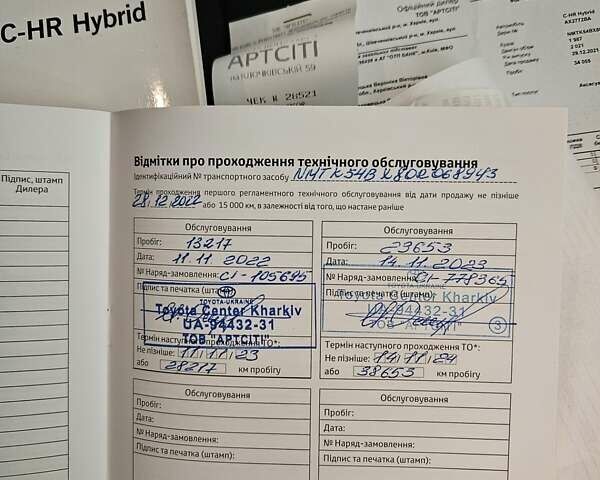 C-HR Hybrid
АРТСІТІ
ЧЕК № 28521
Офіційний дилер
ТОВ "АРТСІТІ"
C-HR Hybrid
AX2772BA
1 987
2 021
29.12.2021
34 055
Підпис, штамп
Дилера
Відмітки про проходження технічного обслуговування
Ідентифікаційний № транспортного засобу
Термін проходження першого регламентного технічного обслуговування від дати продажу не пізніше
28.12.2022 або 15 000 км, в залежності від того, що настане раніше
Обслуговування
Пробіг: 13217
Дата: 11.11.2022
№ Наряд-замовлення: CI-105695
Підпис та печатка (штамп):
TOYOTA-UKRAINE
Toyota Center Kharkiv
UA-94432-31
ТОВ "АРТСІТІ"
Термін наступного проходження ТО*:
Не пізніше: 11/11/23
або 28217 км пробігу
Обслуговування
Пробіг: 23653
Дата: 14.11.2023
№ Наряд-замовлення: CI-778365
Підпис та печатка (штамп):
Toyota Center Kharkiv
UA-94432-31
3
Термін наступного проходження ТО*:
Не пізніше: 14/11/24
або 38653 км пробігу
Обслуговування
Пробіг:
Дата:
№ Наряд-замовлення:
Підпис та печатка (штамп):
Обслуговування
Пробіг:
Дата:
№ Наряд-замовлення:
Підпис та печатка (штамп):